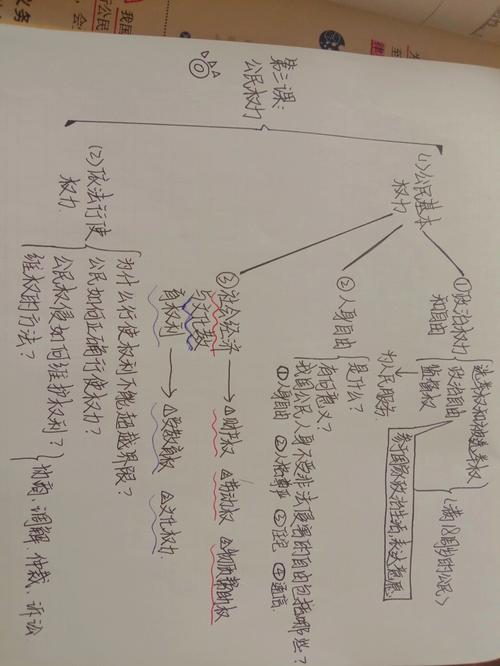 第三课:
公民权力
(1)公民基本
权力
①政治权力
和自由
选举权和被选举权
政治自由
监督权
<满18周岁的公民>
参与国家政治生活,表达意愿
为人民服务
②人身自由
是什么?
有何意义?
我国公民人身不受非法侵害的自由包括哪些?
①人身自由 ②人格尊严 ③住宅 ④通信
③社会经济
与文化教
育权利
→△财产权 △劳动权 △物质帮助权
→△受教育权 △文化权力
(2)依法行使
权力
为什么行使权利不能超越界限?
公民如何正确行使权力?
公民权侵如何维护权利?
维权的方法?
协商、调解、仲裁、诉讼